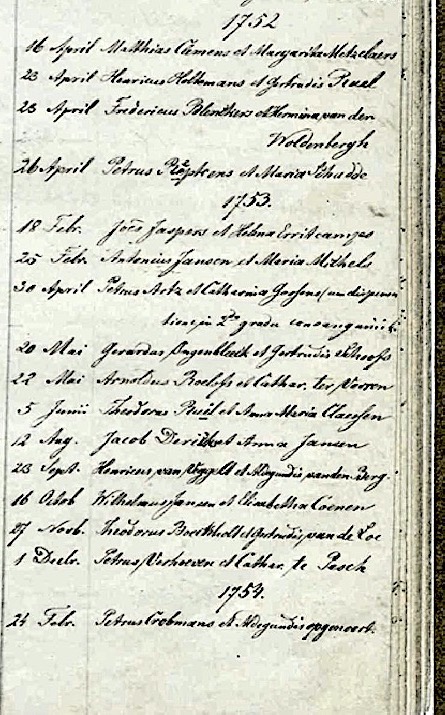 1752
16 April Matthias Clemens et Margarita Metzelaers
23 April Henricus Holtmans et Gertrudis
23 April Fredericus et Hermina van den
Woldenbergh
26 April Petrus et Maria Schadde
1753.
18 Febr. Joēs Jaspers et Helena Erritcamps
25 Febr. Antonius Jansen et Maria Michels
30 April Petrus Artz et Catharina cum dispensa
tione in 2do gradu consanguinit.
20 Mai Gerardus Ingenbleek et Gertrudis Schoofs
22 Mai Arnoldus Roelofs et Cathar. ter Voren
5 Junii Theodorus et Anna Maria Claessen
12 Aug. Jacob et Anna Jansen
23 Sept. Henricus van et Aldegundis van den Berg.
16 Octob Wilhelmus Jansen et Elisabetha Coenen
27 Novb. Theodorus et Gertrudis van de Loe
1 Decbr. Petrus Verhoeven et Cathar. te Pasch
1754.
24 Febr. Petrus Cobmans et Aldegundis opgenoort.